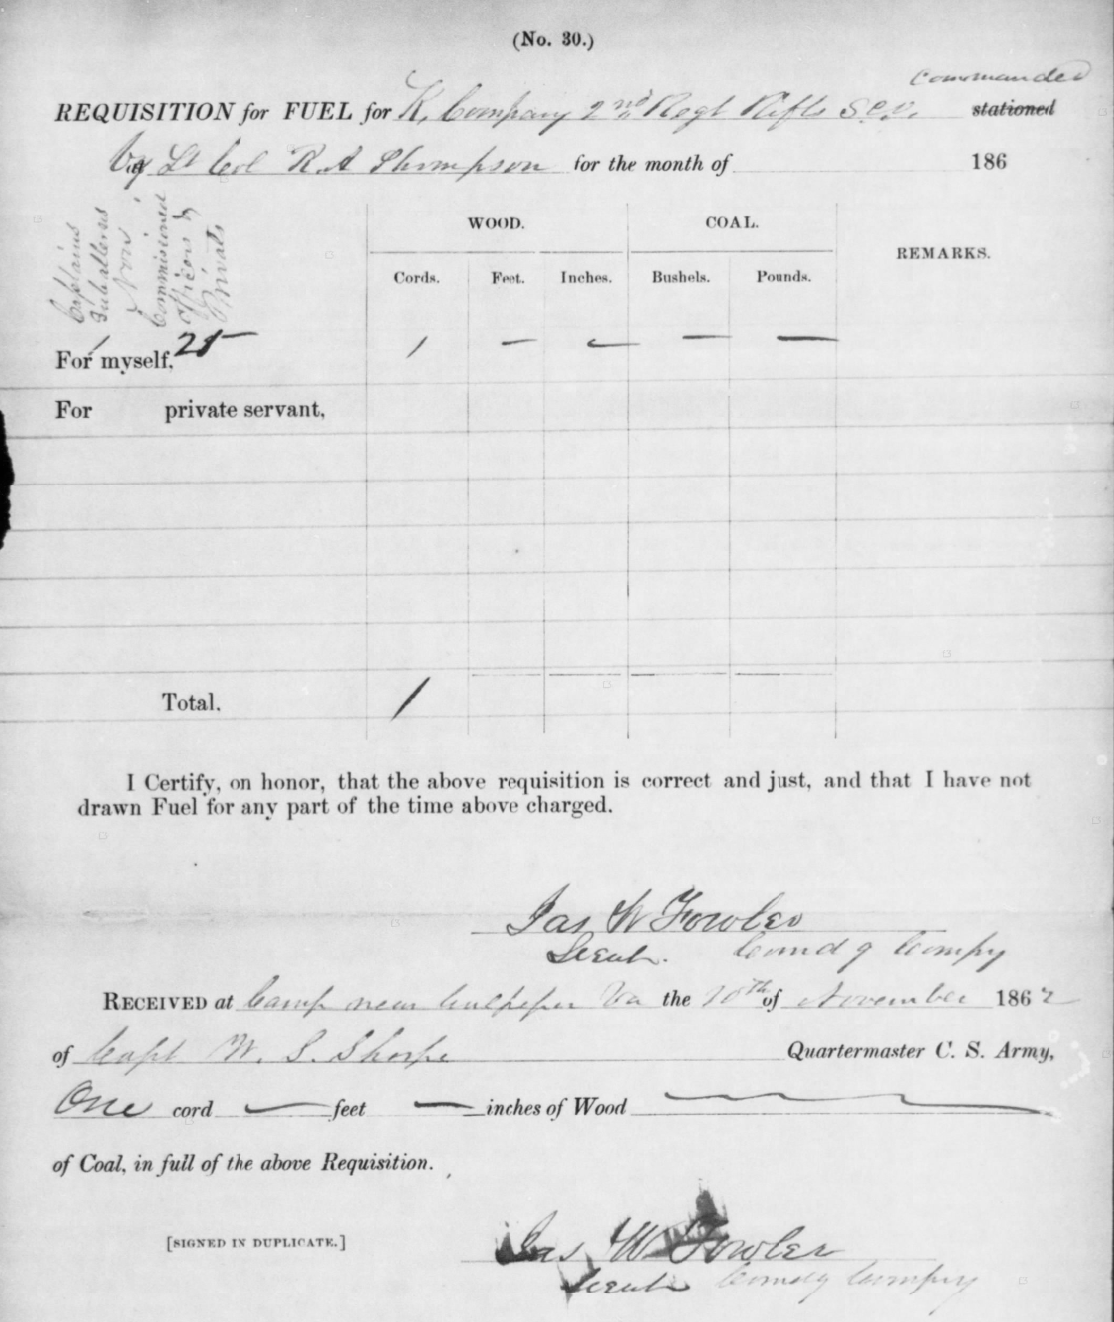 (No. 30.)
commanded
REQUISITION for FUEL for K, Company 2nd Regt Rifls S.C.V. stationed
By Lt Col R. A Thompson for the month of 186
Captains
Subalterns
Non
Commissioned
officers &
Privats
WOOD. COAL. REMARKS.
Cords. Feet. Inches. Bushels. Pounds.
1 25 1 — — — —
For myself,
For private servant,
Total. 1
I Certify, on honor, that the above requisition is correct and just, and that I have not
drawn Fuel for any part of the time above charged.
Jas W Fowler
Lieut. Comndg Compy
RECEIVED at Camp near Culpeper Va the 10th of November 1862
of Capt W. S. Sharpe Quartermaster C. S. Army,
One cord — feet — inches of Wood
of Coal, in full of the above Requisition.
[SIGNED IN DUPLICATE.]
Jas W Fowler
Lieut Comndg Compy